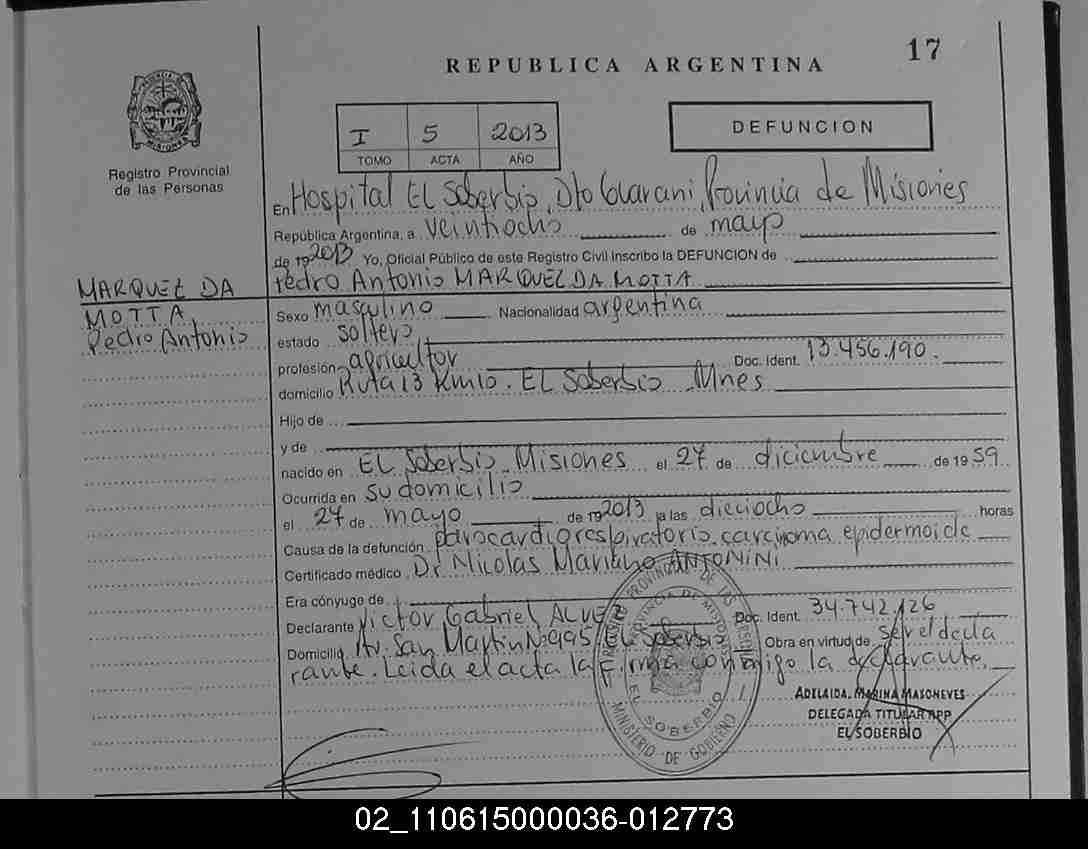 17
REPUBLICA ARGENTINA
I 5 2013
TOMO ACTA AÑO
DEFUNCION
Registro Provincial
de las Personas
En Hospital EL Soberbio, Dto Guarani, Provincia de Misiones
República Argentina, a veintiocho de mayo
de 19 2013 Yo, Oficial Público de este Registro Civil inscribo la DEFUNCION de
Pedro Antonio MARQUEZ DA MOTTA
MARQUEZ DA
MOTTA
Pedro Antonio
Sexo masculino Nacionalidad argentina
estado soltero
profesión agricultor Doc. Ident. 13.456.190.
domicilio Ruta 13 Km 10. EL Soberbio Mnes
Hijo de
y de
nacido en EL Soberbio Misiones el 27 de diciembre de 19 59
Ocurrida en su domicilio
el 27 de mayo de 19 2013 a las dieciocho horas
Causa de la defunción parocardiorespiratorio. carcinoma epidermoide
Certificado médico Dr Nicolas Mariano ANTONINI
Era cónyuge de
Declarante Victor Gabriel ALVEZ Doc. Ident. 34.742.126
Domicilio Av. San Martin Nº 995 EL Soberbio Obra en virtud de ser el decla
rante. Leida el acta la firma conmigo la declarante.
ADELAIDA. MARINA MASONEVES
DELEGADA TITULAR RPP
EL SOBERBIO
PROVINCIA DE MISIONES
EL SOBERBIO
MINISTERIO DE GOBIERNO
02_110615000036-012773